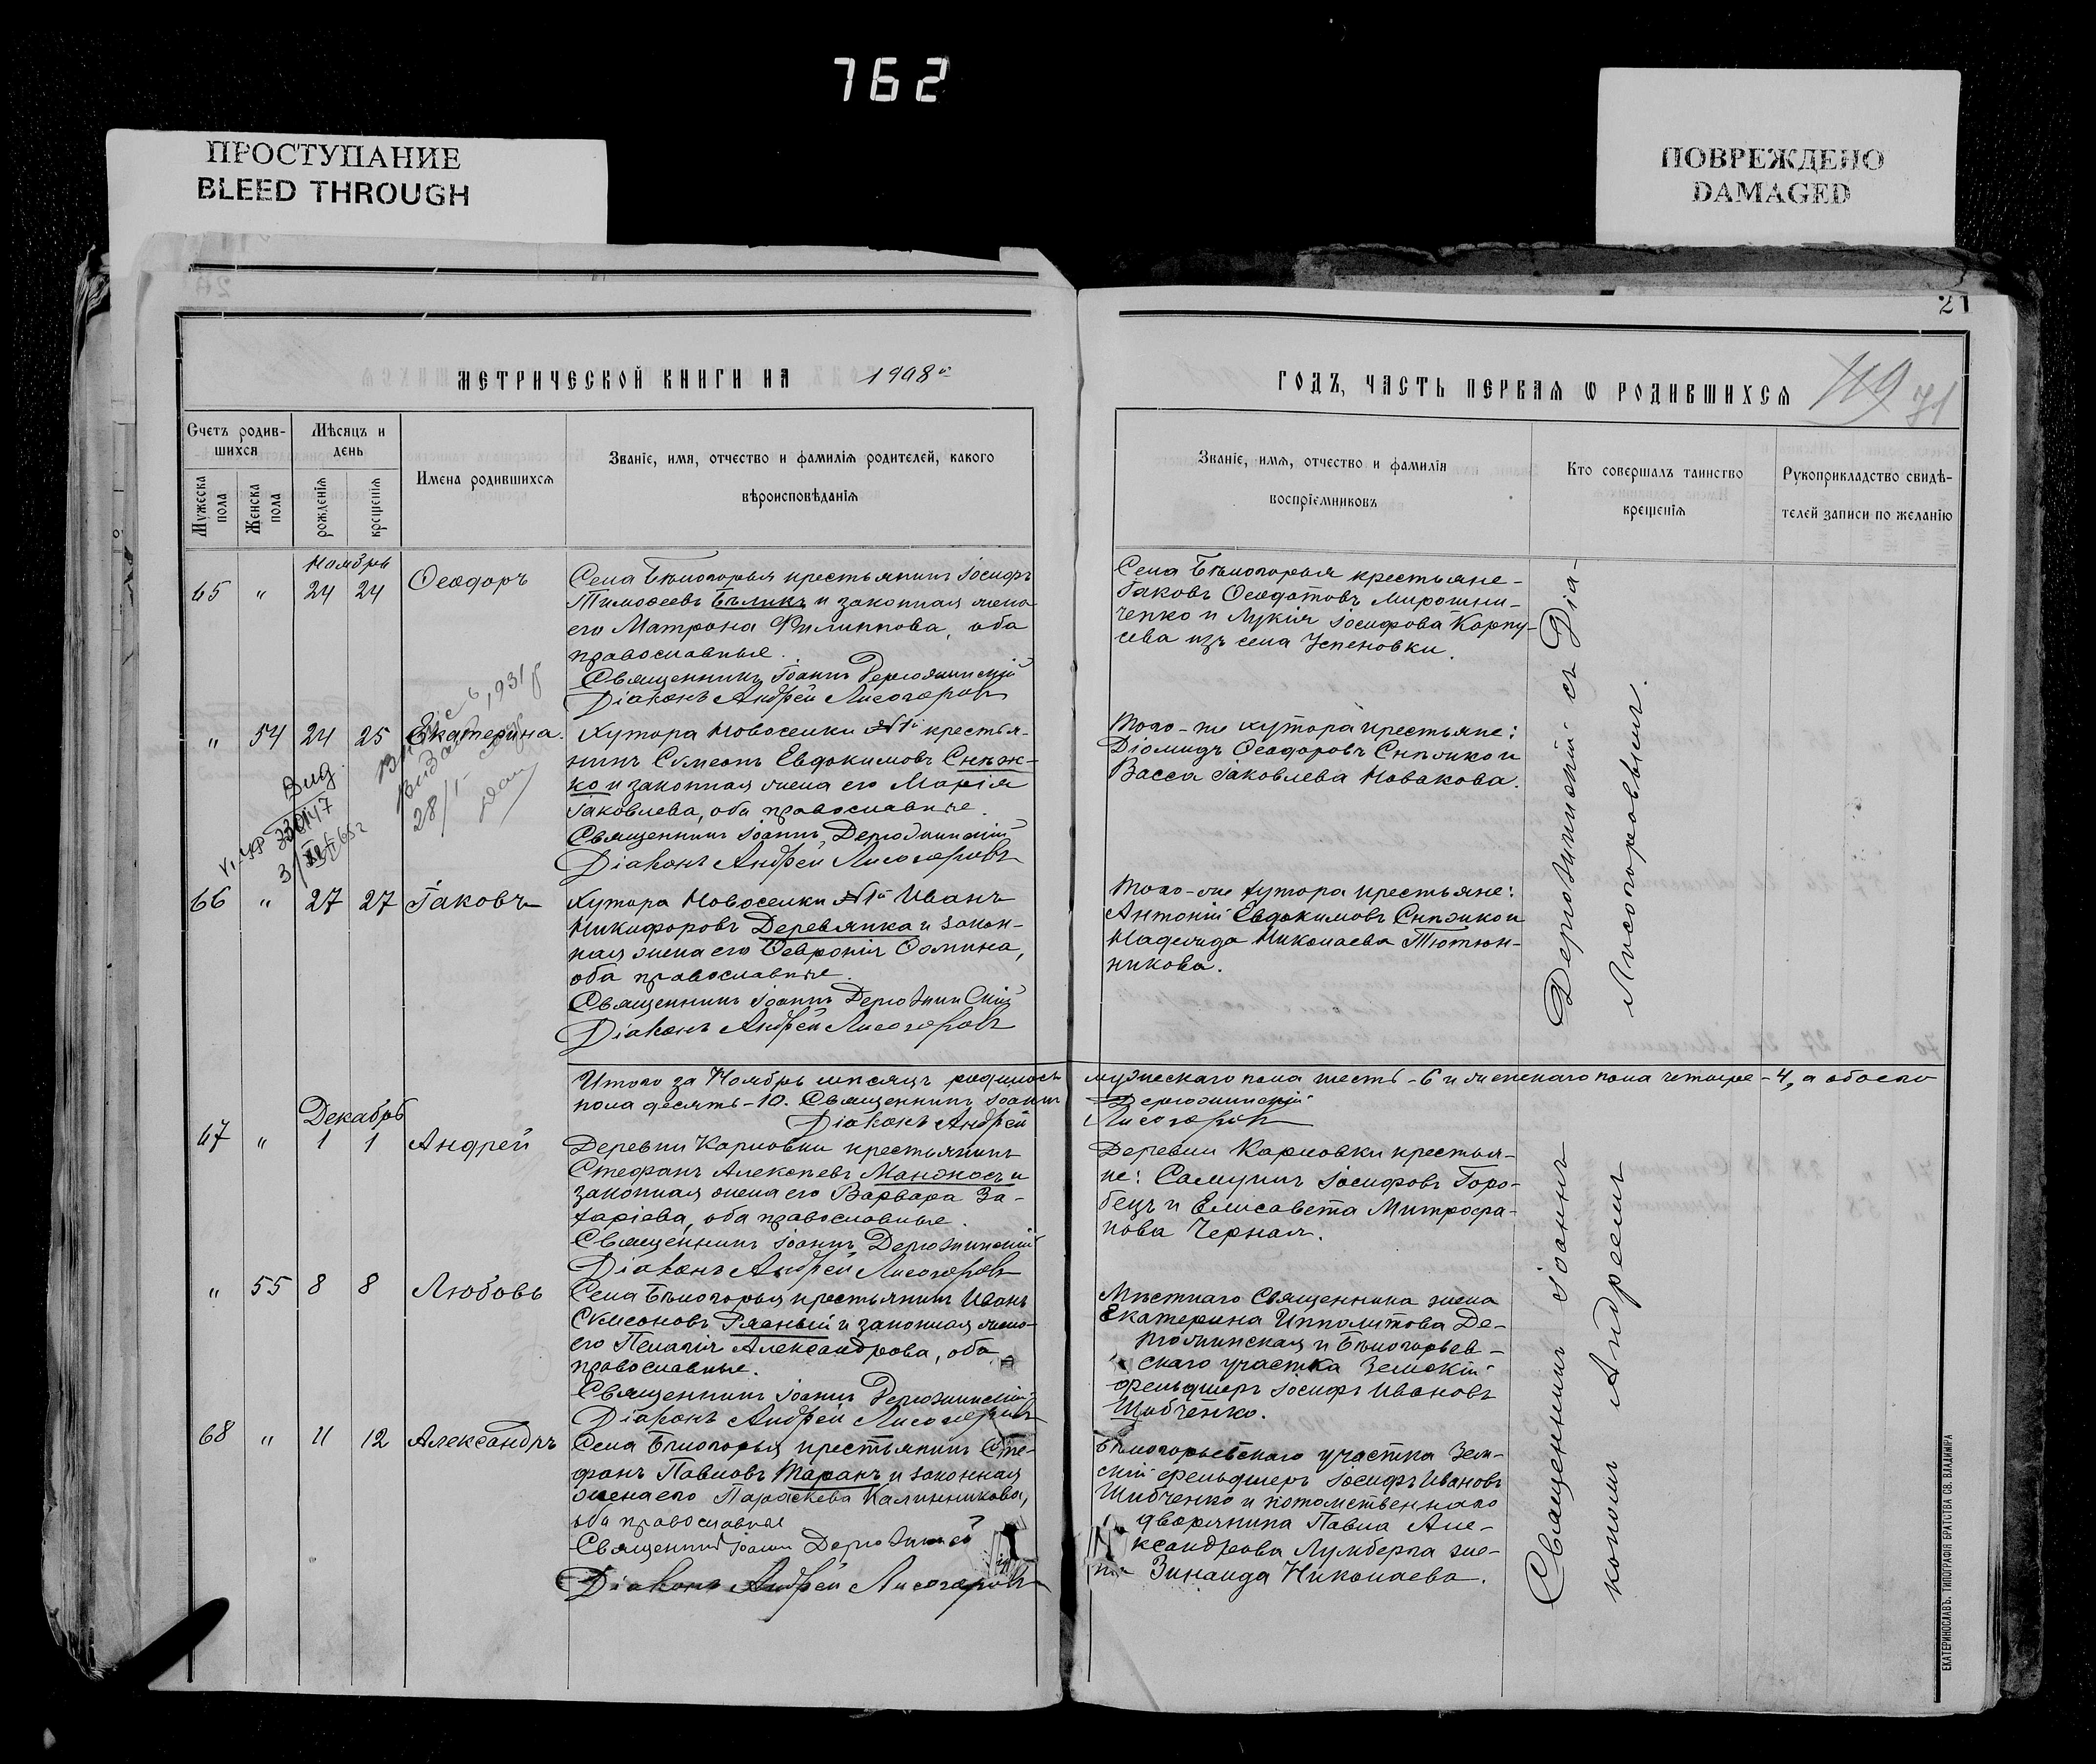 762
ПРОСТУПАНИЕ
BLEED THROUGH
ПОВРЕЖДЕНО
DAMAGED
21
МЕТРИЧЕСКОЙ КНИГИ НА 1908й
ГОДЪ, ЧАСТЬ ПЕРВАЯ Ѡ РОДИВШИХСЯ
119 71
Счетъ родив-
шихся
Мѣсяцъ и
день
Мужеска
пола
Женска
пола
рожденія
крещенія
Имена родившихся
Званіе, имя, отчество и фамилія родителей, какого
вѣроисповѣданія
Званіе, имя, отчество и фамилія
воспріемниковъ
Кто совершалъ таинство
крещенія
Рукоприкладство свидѣ-
телей записи по желанію
Ноябрь
65 " 24 24 Ѳеодоръ
Села Бѣлогорья крестьянинъ Іосифъ
Тимоѳеевъ Бѣликъ и законная жена
его Матрона Филиппова, оба
православные.
Священникъ Іоаннъ Держинскій
Діаконъ Андрей Лисогоровъ
Села Бѣлогорья крестьяне-
Іаковъ Ѳеодотовъ Мирошни-
ченко и Лукія Іосифова Корпу-
сева изъ села Успеновки.
" 54 24 25 Екатерина.
Хутора Новоселки №1й крестья-
нинъ Сѵмеонъ Евдокимовъ Снѣж-
ко и законная жена его Марія
Іаковлева, оба православные.
Священникъ Іоаннъ Держинскій
Діаконъ Андрей Лисогоровъ
Того-же хутора крестьяне:
Діомидъ Ѳеодоровъ Снѣжко и
Васса Іаковлева Новакова.
28/I
66 " 27 27 Іаковъ
Хутора Новоселки №1й Иванъ
Никифоровъ Деревянка и закон-
ная жена его Ѳевронія Ѳомина,
оба православные.
Священникъ Іоаннъ Держинскій
Діаконъ Андрей Лисогоровъ
Того-же хутора крестьяне:
Антоній Евдокимовъ Снѣжко и
Надежда Николаева Тютюн-
никова.
Итого за Ноябрь мѣсяцъ родилось мужескаго пола шесть-6 и женскаго пола четыре-4, а обоего
пола десять-10. Священникъ Іоаннъ Держинскій
Діаконъ Андрей Лисогоровъ
Декабрь
67 " 1 1 Андрей
Деревни Карловки крестьянинъ
Стефанъ Алексѣевъ Манжосъ и
законная жена его Варвара За-
харіева, оба православные.
Священникъ Іоаннъ Держинскій
Діаконъ Андрей Лисогоровъ
Деревни Карловки крестья-
не: Самуилъ Іосифовъ Горо-
бецъ и Елисавета Митрофа-
нова Черная.
" 55 8 8 Любовь
Села Бѣлогорья крестьянинъ Иванъ
Сѵмеоновъ Рясный и законная жена
его Пелагія Александрова, оба
православные.
Священникъ Іоаннъ Держинскій
Діаконъ Андрей Лисогоровъ
Мѣстнаго Священника жена
Екатерина Ипполитова Де-
ржинская и Бѣлогорьев-
скаго участка Земскій
фельдшеръ Іосифъ Ивановъ
Шибченко.
68 " 11 12 Александръ
Села Бѣлогорья крестьянинъ Сте-
фанъ Павловъ Таранъ и законная
жена его Параскева Калинникова,
оба православные
Священникъ Іоаннъ Держинскій
Діаконъ Андрей Лисогоровъ
Бѣлогорьевскаго участка Зем-
скій фельдшеръ Іосифъ Ивановъ
Шибченко и потомственнаго
дворянина Павла Але-
ксандрова Лумберга же-
на Зинаида Николаева.
Священникъ Іоаннъ Держинскій съ Діа-
кономъ Андреемъ Лисогоровымъ.
ЕКАТЕРИНОСЛАВЪ. ТИПОГРАФІЯ БРАТСТВА СВ. ВЛАДИМІРА